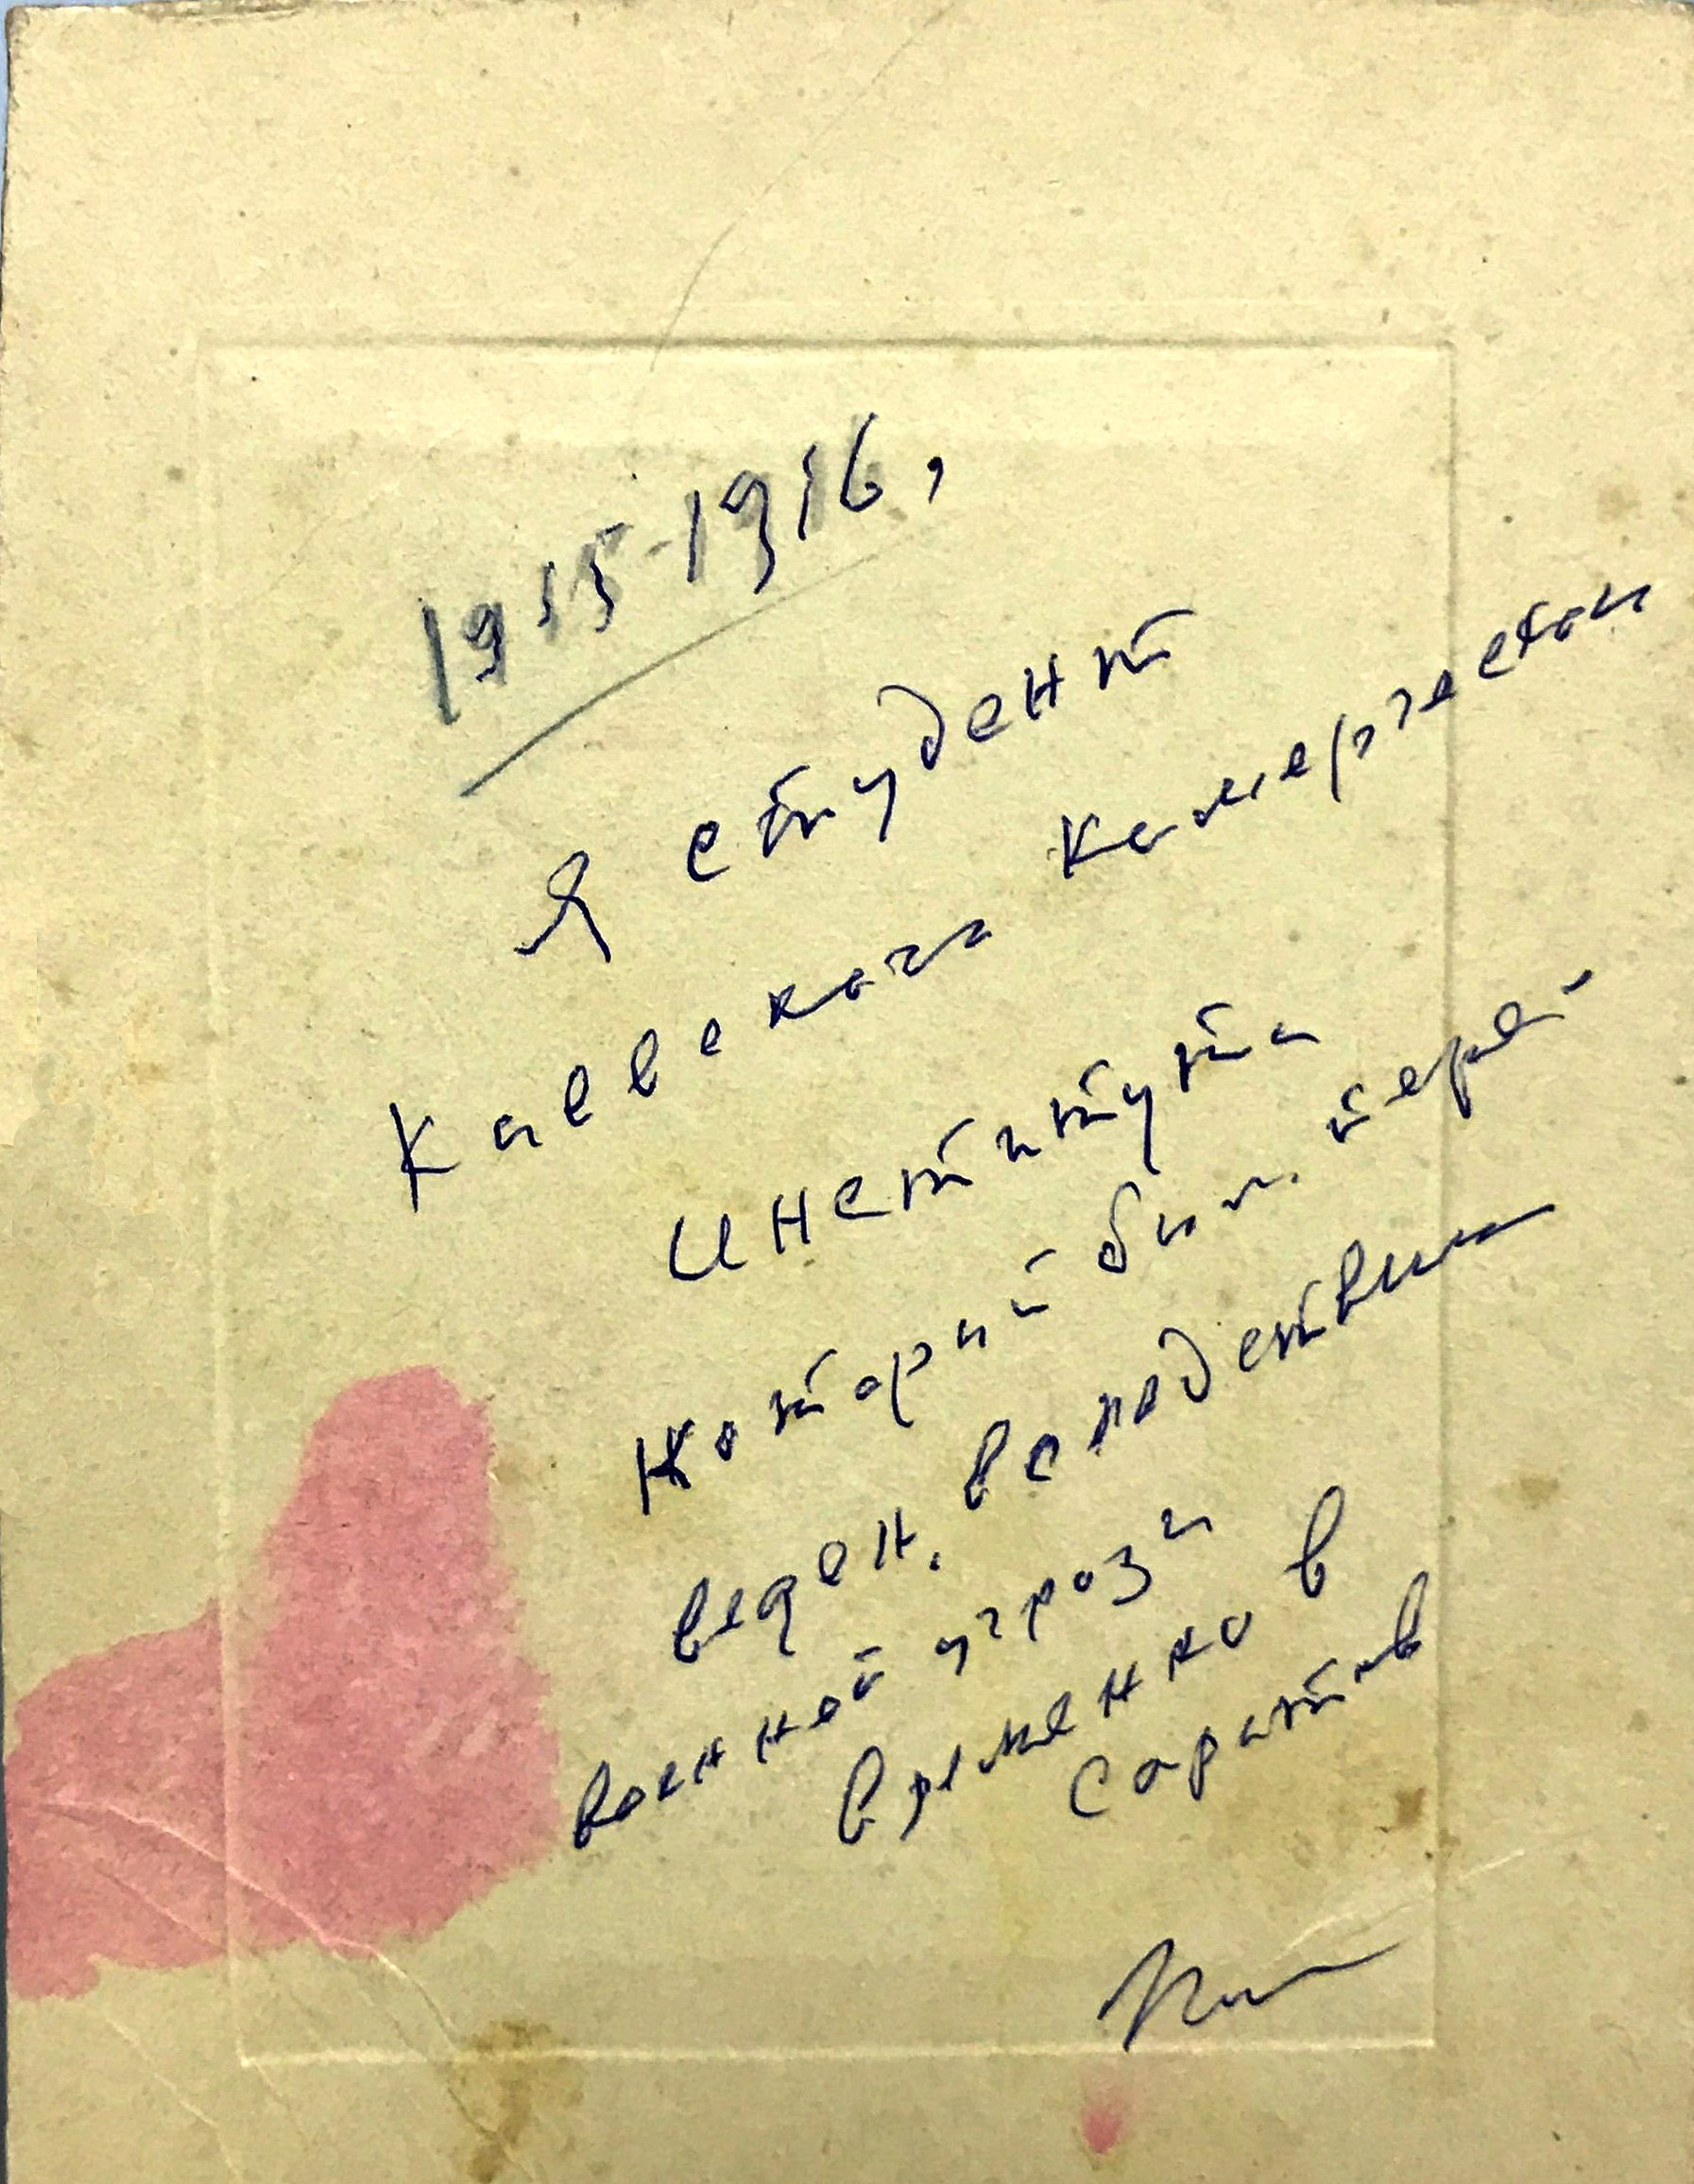 1915-1916,
Я студент
Киевского Комерческ
института
который был. перей
веден. вспедствии
военной угрози
временно в
Саратов